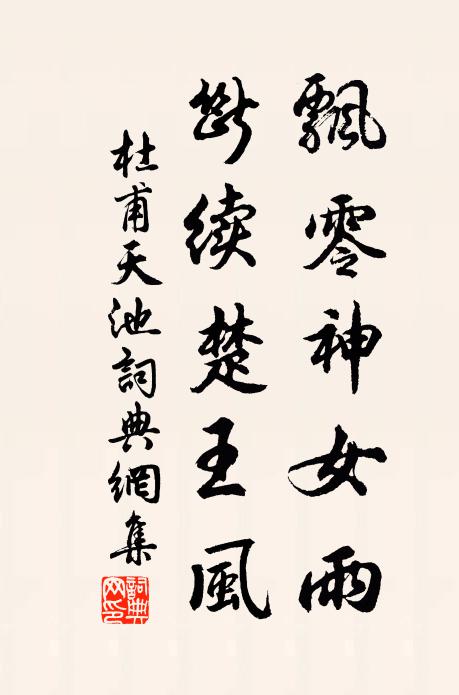 飄零神女雨
斷续楚王風
杜甫天池詞典網集
詞典网印